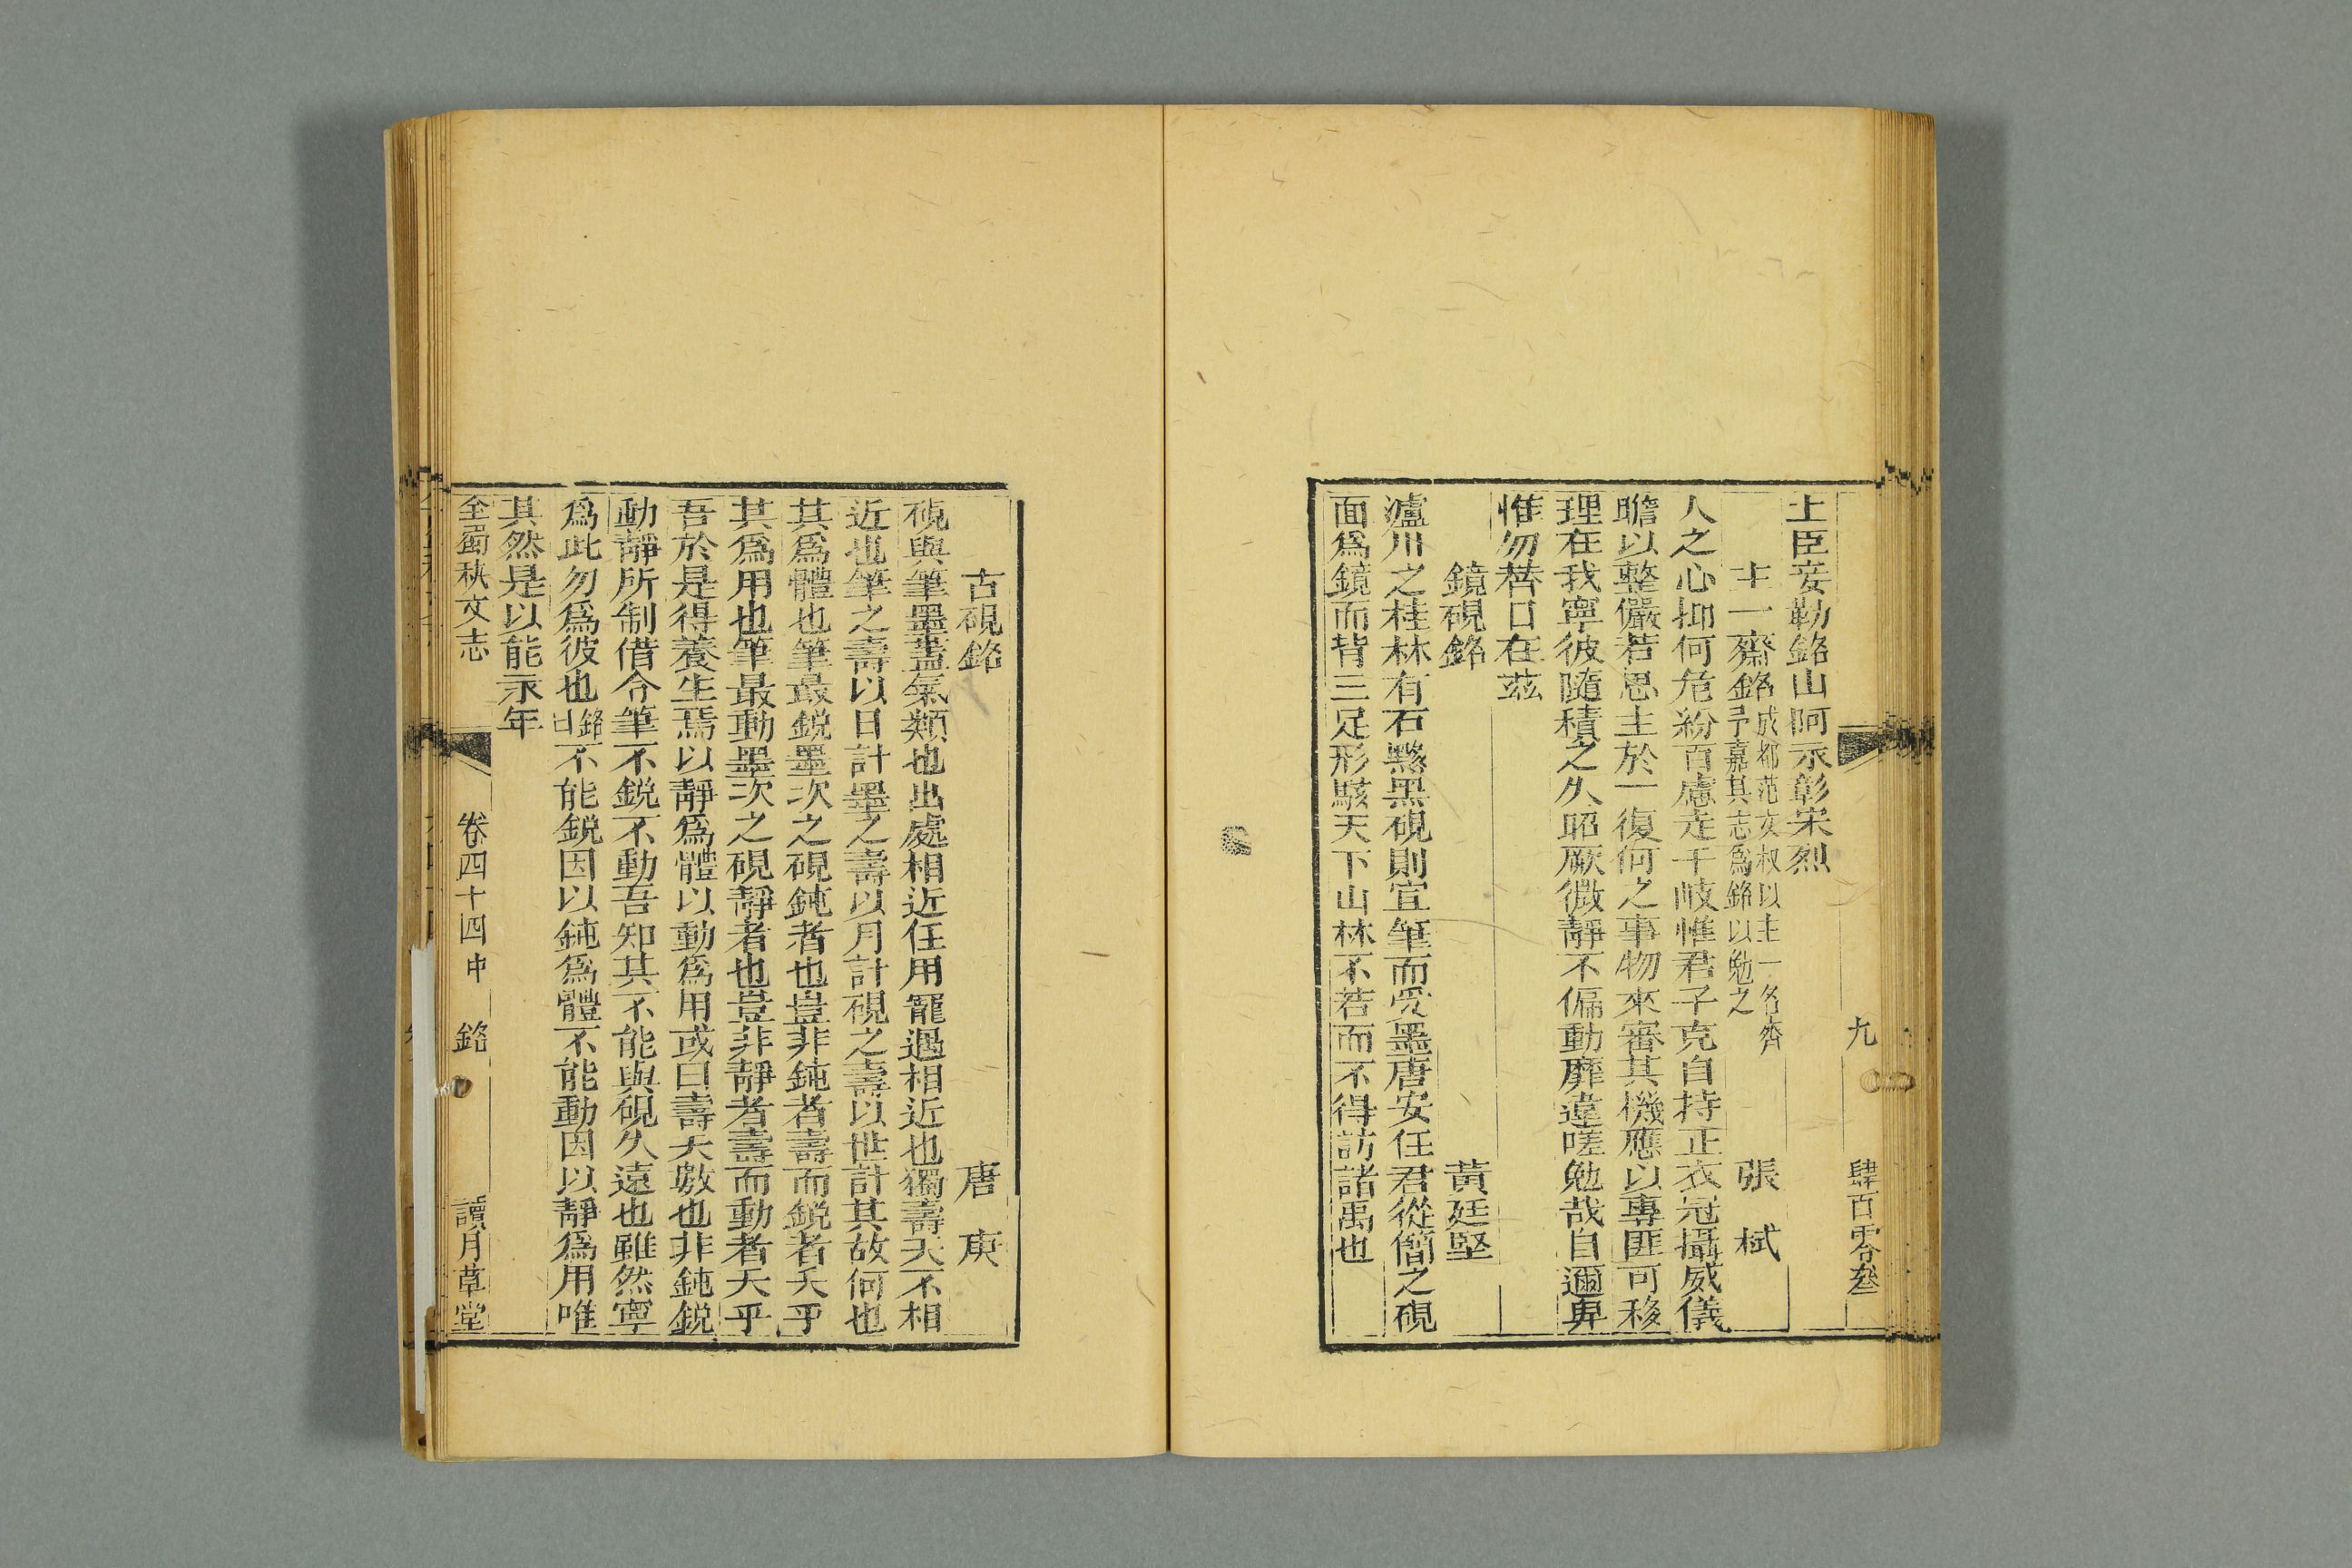 九　肆百零叄
上臣妾勒銘山阿永彰宋烈
主一齋銘　成都范文叔以主一名齊　予嘉其志爲銘以勉之　張栻
人之心抑何危紛百慮走千岐惟君子克自持正衣冠攝威儀
瞻以整儼若思主於一復何之事物來審其機應以專匪可移
理在我寧彼隨積之久昭厥微靜不偏動靡違嗟勉哉自邇卑
惟勿替日在茲
鏡硯銘　黃廷堅
瀘川之桂林有石黟黑硯則宣筆而受墨唐安任君從簡之硯
面爲鏡而背三足形駭天下山林不若而不得訪諸禹也
古硯銘　唐庚
硯與筆墨蓋氣類也出處相近任用寵遇相近也獨壽夭不相
近也筆之壽以日計墨之壽以月計硯之壽以世計其故何也
其爲體也筆最銳墨次之硯鈍者也豈非鈍者壽而銳者夭乎
其爲用也筆最動墨次之硯靜者也豈非靜者壽而動者夭乎
吾於是得養生焉以靜爲體以動爲用或曰壽夭數也非鈍銳
動靜所制借令筆不銳不動吾知其不能與硯久遠也雖然寧
爲此勿爲彼也銘曰不能銳因以鈍爲體不能動因以靜爲用唯
其然是以能永年
全蜀秇文志　卷四十四中　銘　讀月草堂